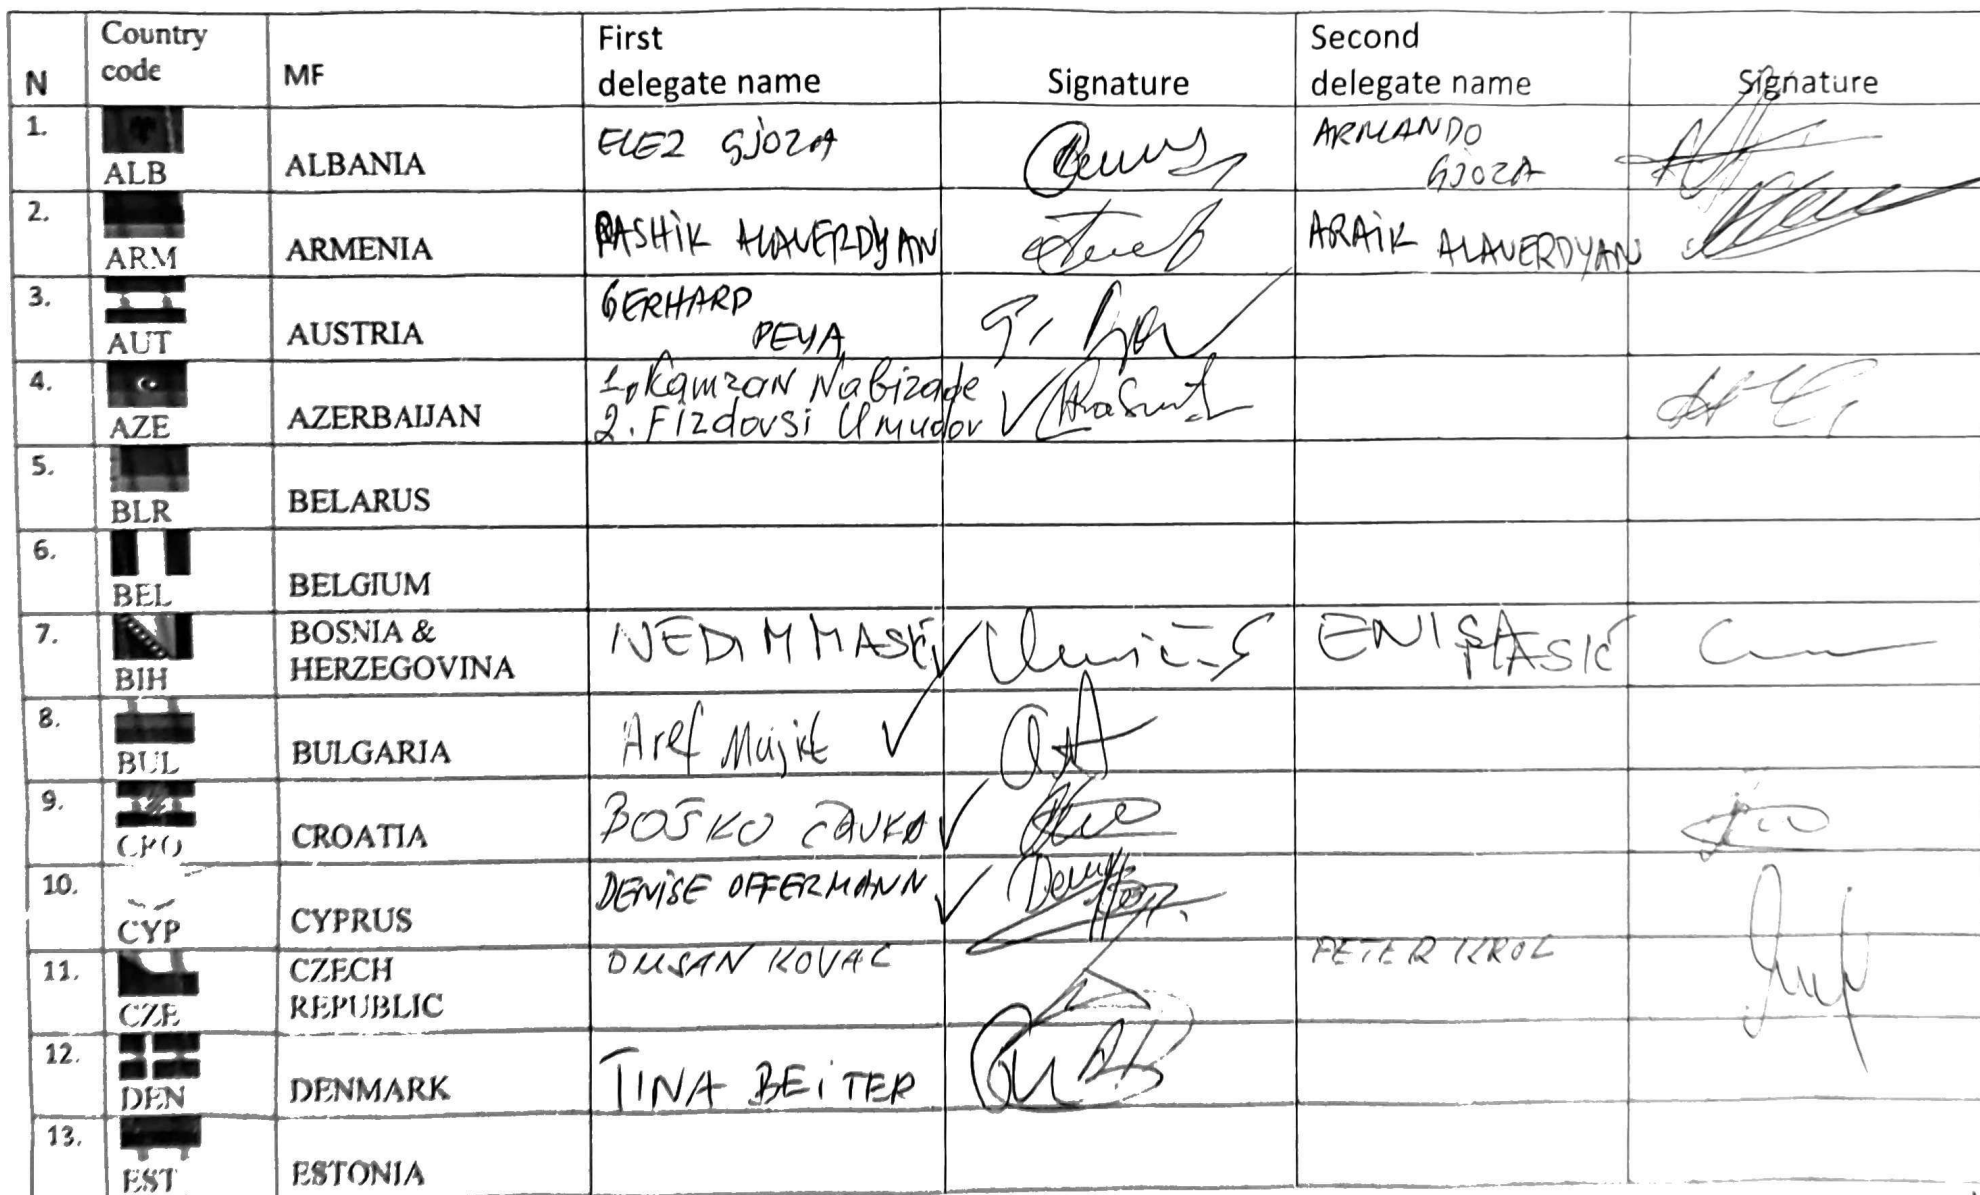 N Country code MF First delegate name Signature Second delegate name Signature
1. ALB ALBANIA ELEZ GJOZA ARMANDO GJOZA
2. ARM ARMENIA PASHIK ALAVERDYAN ARAIK ALAVERDYAN
3. AUT AUSTRIA GERHARD PEYA
4. AZE AZERBAIJAN 1. Kamran Nabizade
2. Firdovsi Umudov
5. BLR BELARUS
6. BEL BELGIUM
7. BIH BOSNIA & HERZEGOVINA NEDIM MASIĆ ENISA MASIĆ
8. BUL BULGARIA Aref Majid
9. CRO CROATIA BOŠKO ČAVKA
10. CYP CYPRUS DENISE OFFERMANN
11. CZE CZECH REPUBLIC DUSAN KOVAC PETER KROL
12. DEN DENMARK TINA BEITER
13. EST ESTONIA